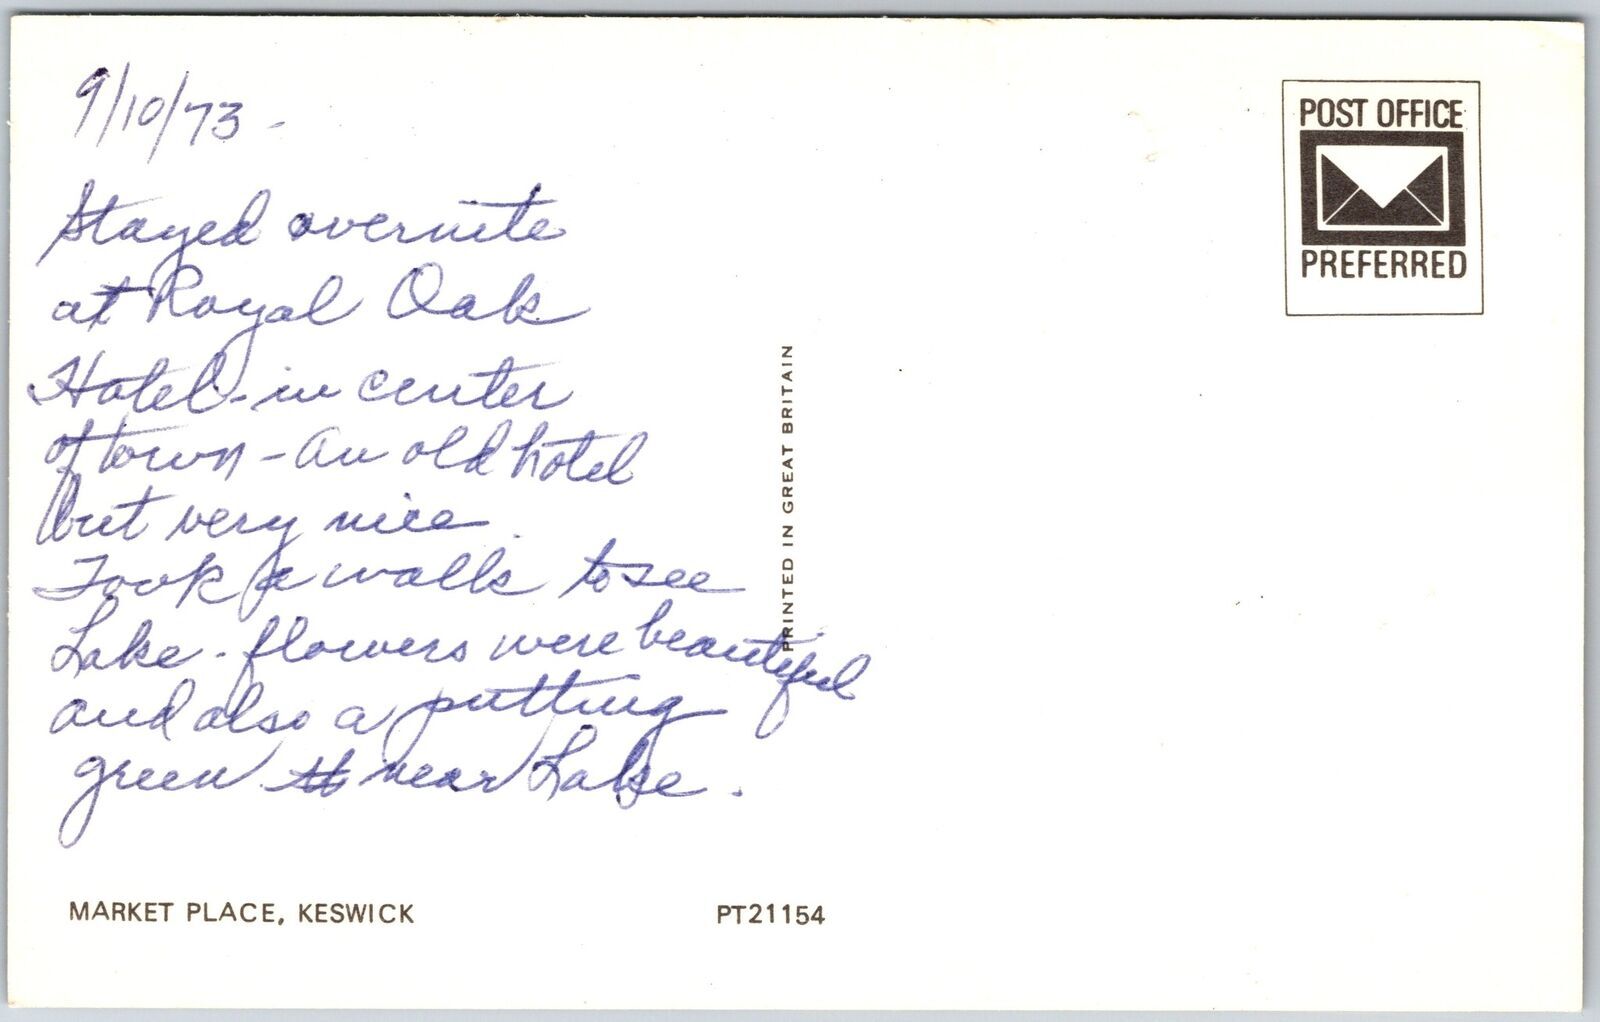 9/10/73 -
Stayed overnite
at Royal Oak
Hotel - in center
of town - an old hotel
but very nice
Took a walk to see
Lake - flowers were beautiful
and also a putting
green near Lake.
MARKET PLACE, KESWICK
PT21154
PRINTED IN GREAT BRITAIN
POST OFFICE
PREFERRED